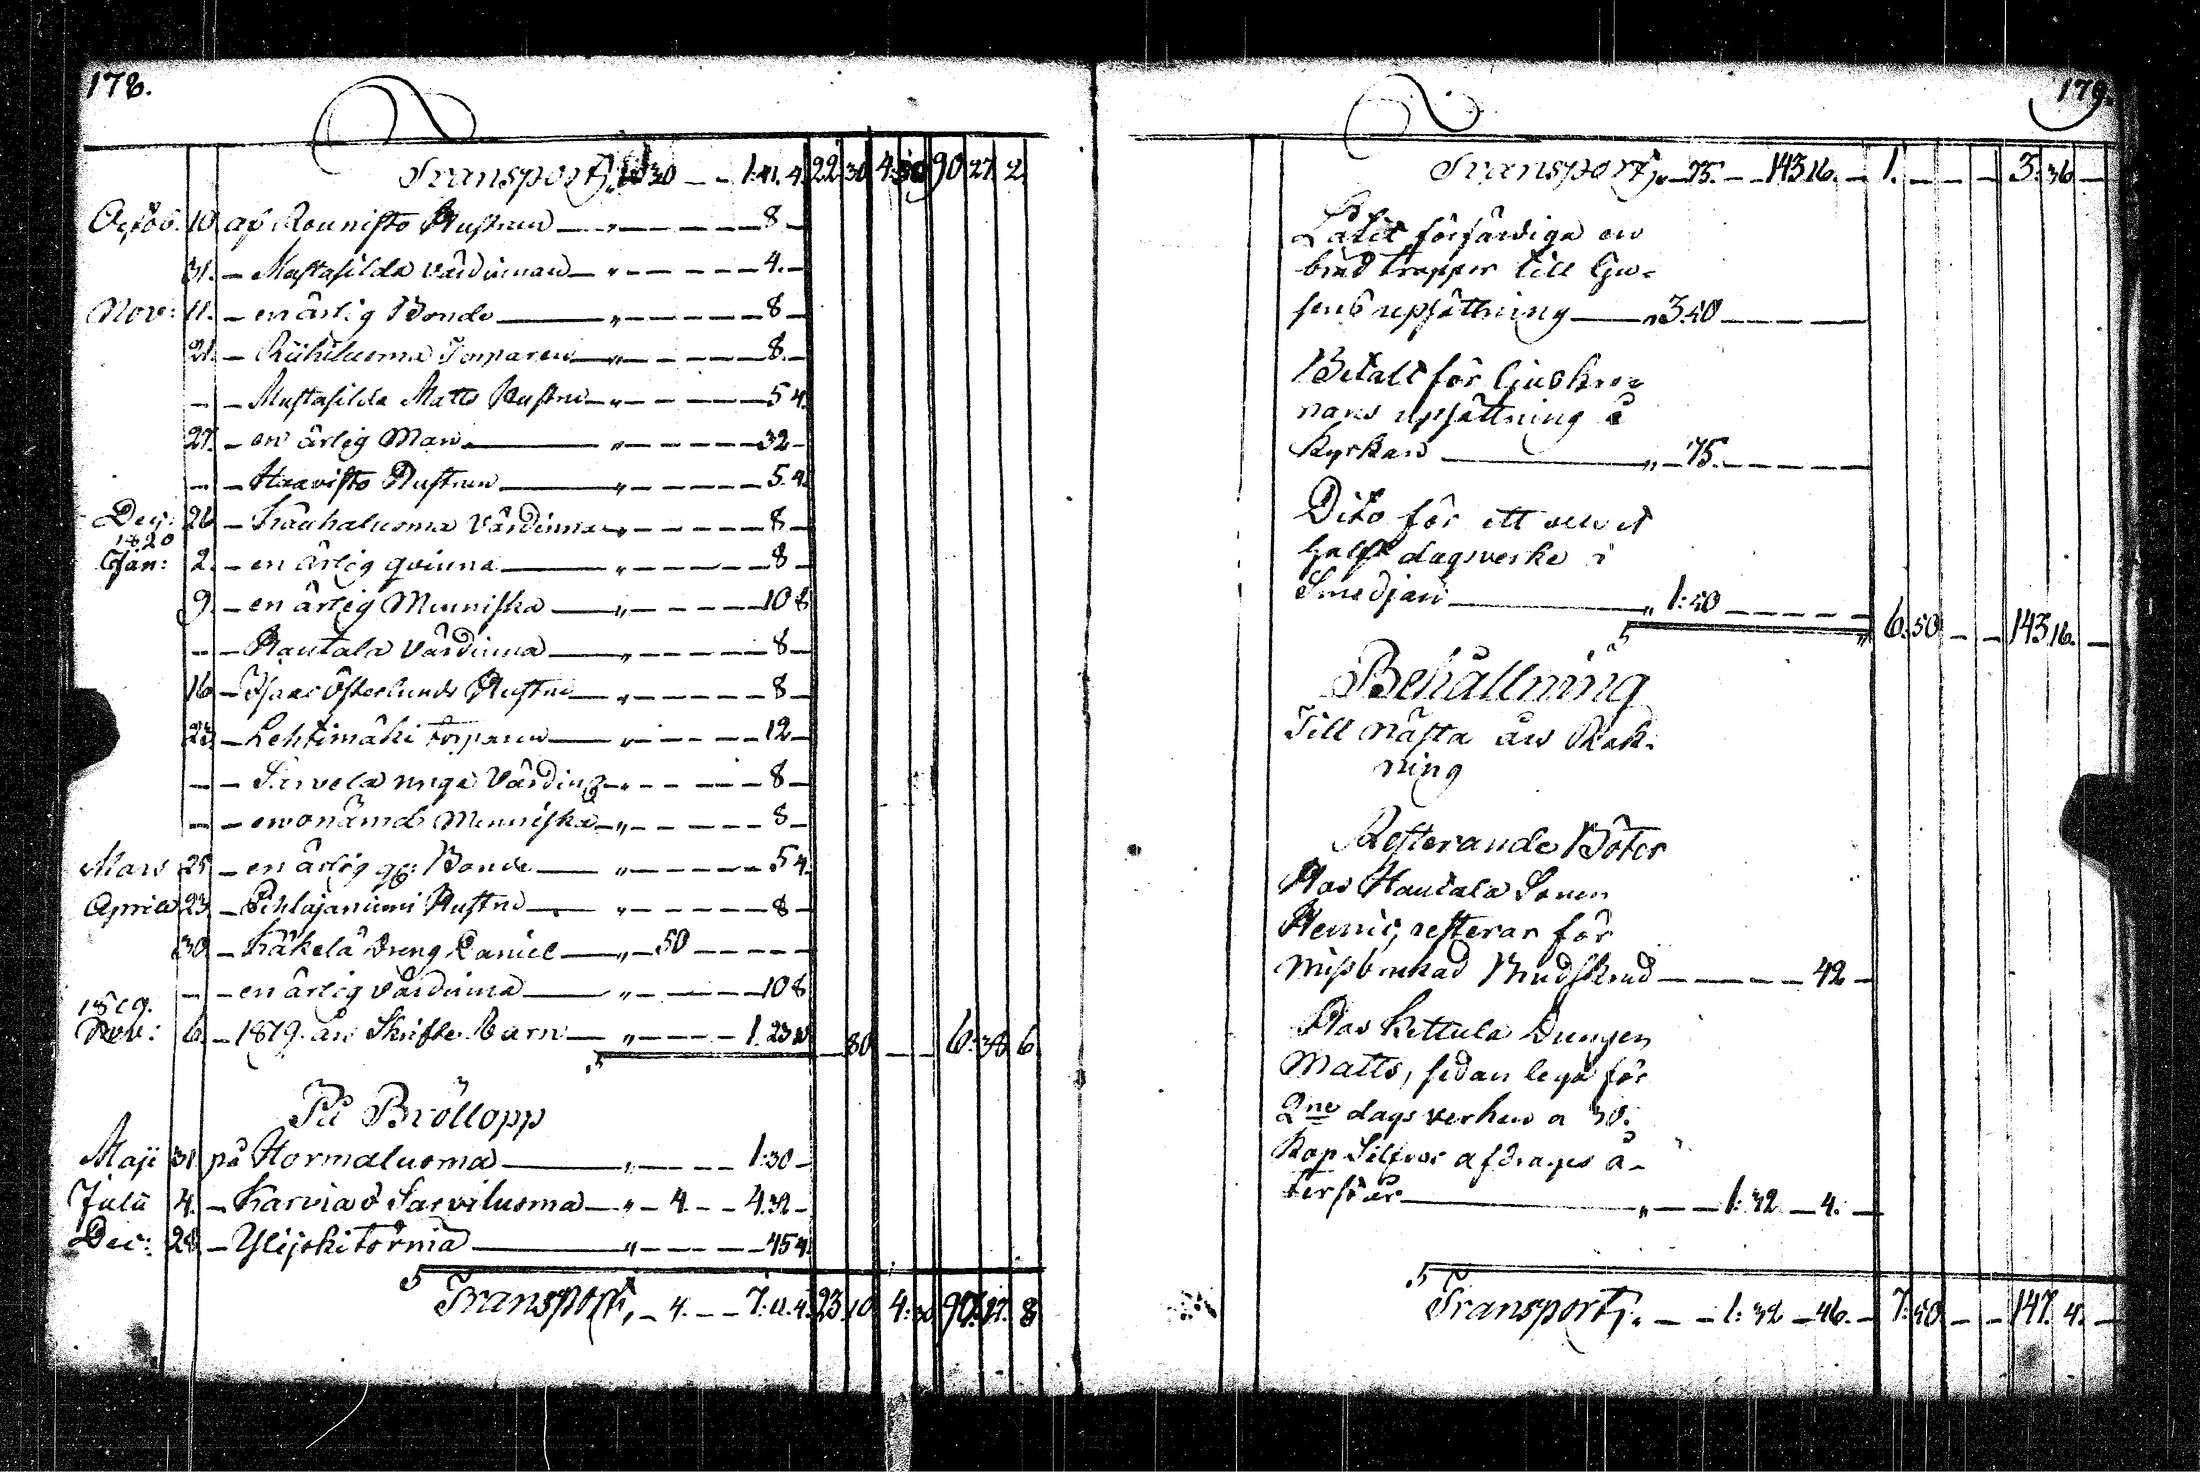 178.
Transport, 30 — — 1.11.4. 22 30 4. 30 90 27 2.
Octob. 10. af Rounisto Hustrun — " — — — 8 —
31. — Mustasilda värdinnan — " — — — 4. —
Nov: 11. — en ärlig Bonde — " — — — 8 —
21. — Riihiluoma Torparen — " — — — 8. —
— — Mustasilda Matts Hustru — " — — — 5 4.
27. — en ärlig Man — " — — — 32 —
— — Haavisto Hustrun — " — — — 5. 4.
Dec: 26 — Kauhaluoma Värdinna — " — — — 8 —
1820
Jan: 2. — en ärlig qvinna — " — — — 8 —
9. — en ärlig Menniska — " — — — 10 8
— — Rautala Värdinna — " — — — 8 —
16 — Isaac Österlunds Hustru — " — — — 8 —
23 — Lehtimäki torparen — " — — — 12 —
— — unga Värdin — " — — — 8 —
— — en onämd Menniska — " — — — 8 —
Mars 25 — en ärlig Bonde — " — — — 5 4.
April 23. — Pihlajaniemi Hustru — " — — — 8 —
30. — Käkelä Dreng Daniel — " — 50 — — —
— — en ärlig Värdinna — " — — — 10 8
1819.
Nov: 6. — 1819. års Skrifte barn — " — — — 1. 23 — 80 — — 6. 38 6
På Bröllopp
Maji 31 på Hormaluoma — " — — — 1:30 —
Julii 4. — Karvia o Sarviluoma — " — 4. — — 4.32 —
Dec: 28 — Ylijoki törmä — " — — — 45 4.
Transport, — 4. — — 7. 11. 4. 23. 10. 4: 30 97. 17. 8
179.
Transport, — 75. — — 143 16. — 1. — — — 3. 36 —
Låtit förfärdiga en
bred trappor till Lju-
sens upsättning — " 3.50 — — —
Betalt för Ljuskro-
nans upsättning i
Kyrkan — " — 75. — — —
Dito för ett och et
halft dagsverke i
Smedjan — " 1:50 — — — 6. 50 — — 143 16. —
Behållning
Till nästa års Räk-
ning
Resterande Böter
Hos Hautala Sonen
Henric, resterar för
missbrukad Budskrud — — — 42 —
Hos Kettula Drengen
Matts, sedan lega för
2ne dagsverken a 30.
Kop Silfver afdrages å-
terstår — " — — 1: 32 — 4. —
Transport, — — 1: 32 — 46. — 7. 50 — — 147. 4. —